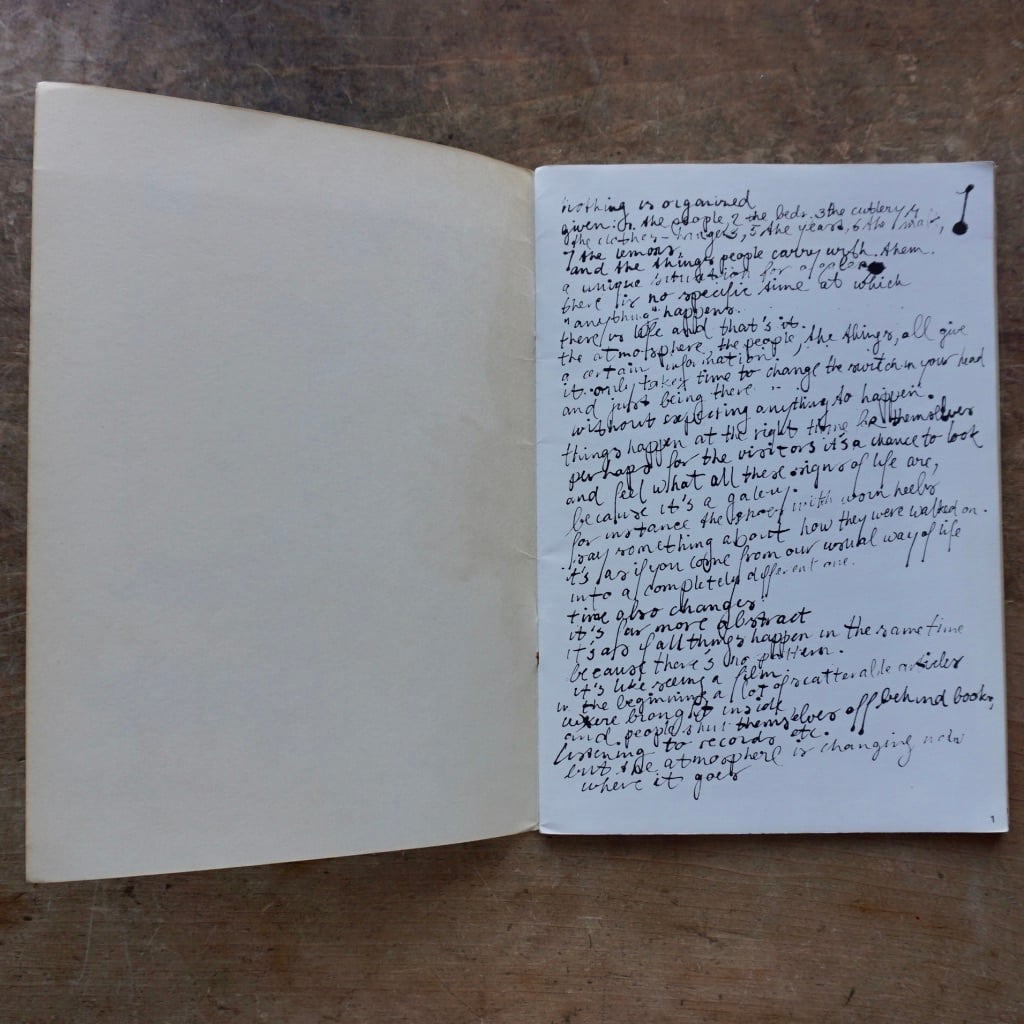 nothing is organized
given is the people, 2 the beds, 3 the cutlery, 4
the clothes-hangers, 5 the years, 6 the
7 the lemons,
and the things people carry with them.
a unique situation for a
there is no specific time at which
"anything" happens.
there is life and that's it.
the atmosphere, the people, the things, all give
a certain information.
it only takes time to change the switch in your head
and just being there
without expecting anything to happen.
things happen at the right time be themselves
perhaps for the visitors it's a chance to look
and feel what all these signs of life are,
because it's a galery.
for instance the shoes with worn heels
say something about how they were walked on.
it's as if you come from our usual way of life
into a completely different one.
time also changes.
it's far more abstract
it's as if all things happen in the same time
because there's no pattern.
it's like seeing a film.
in the beginning a lot of scatterable articles
were brought inside
and people shut themselves off behind books,
listening to records etc.
but the atmosphere is changing now
where it goes
1